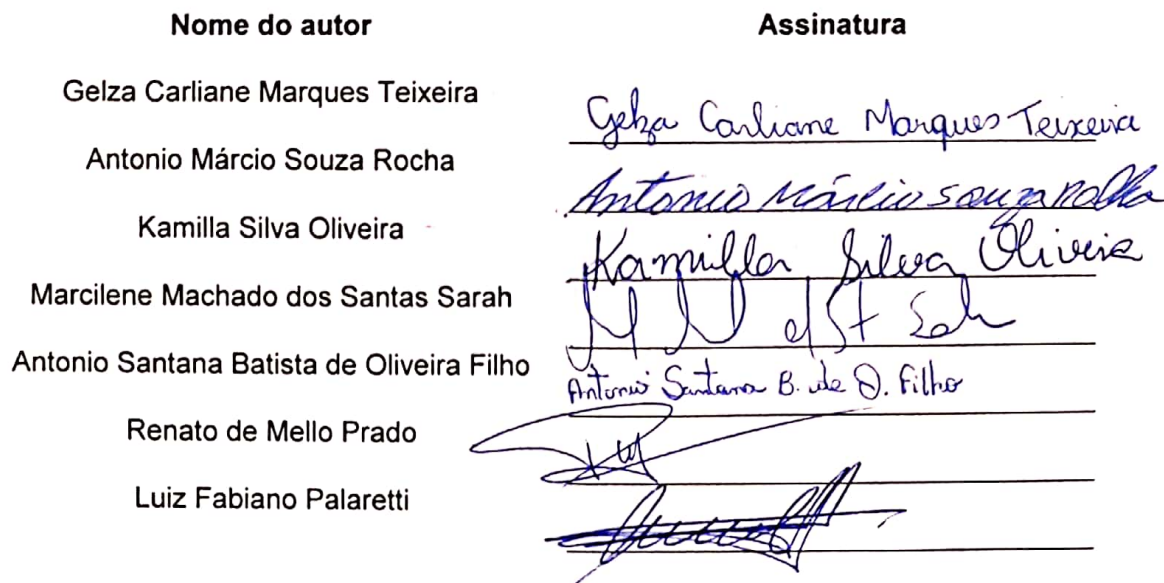 Nome do autor Assinatura
Gelza Carliane Marques Teixeira Gelza Carliane Marques Teixeira
Antonio Márcio Souza Rocha Antonio Márcio Souza Rocha
Kamilla Silva Oliveira Kamilla Silva Oliveira
Marcilene Machado dos Santas Sarah
Antonio Santana Batista de Oliveira Filho Antonio Santana B. de O. Filho
Renato de Mello Prado
Luiz Fabiano Palaretti